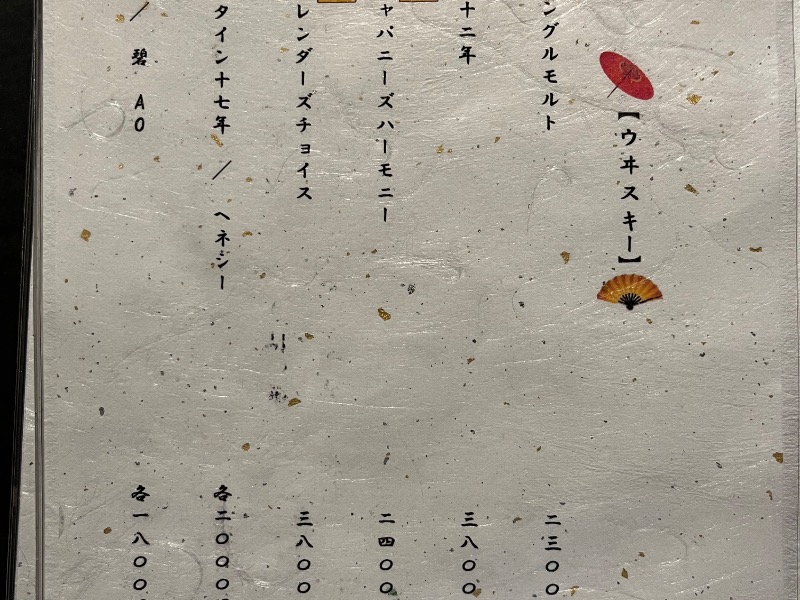 【ウヰスキー】
ングルモルト 二三〇〇
十二年 三八〇〇
ャパニーズハーモニー 二四〇〇
レンダーズチョイス 三八〇〇
タイン十七年 / ヘネシー 各二〇〇〇
/ 碧 AO 各一八〇〇